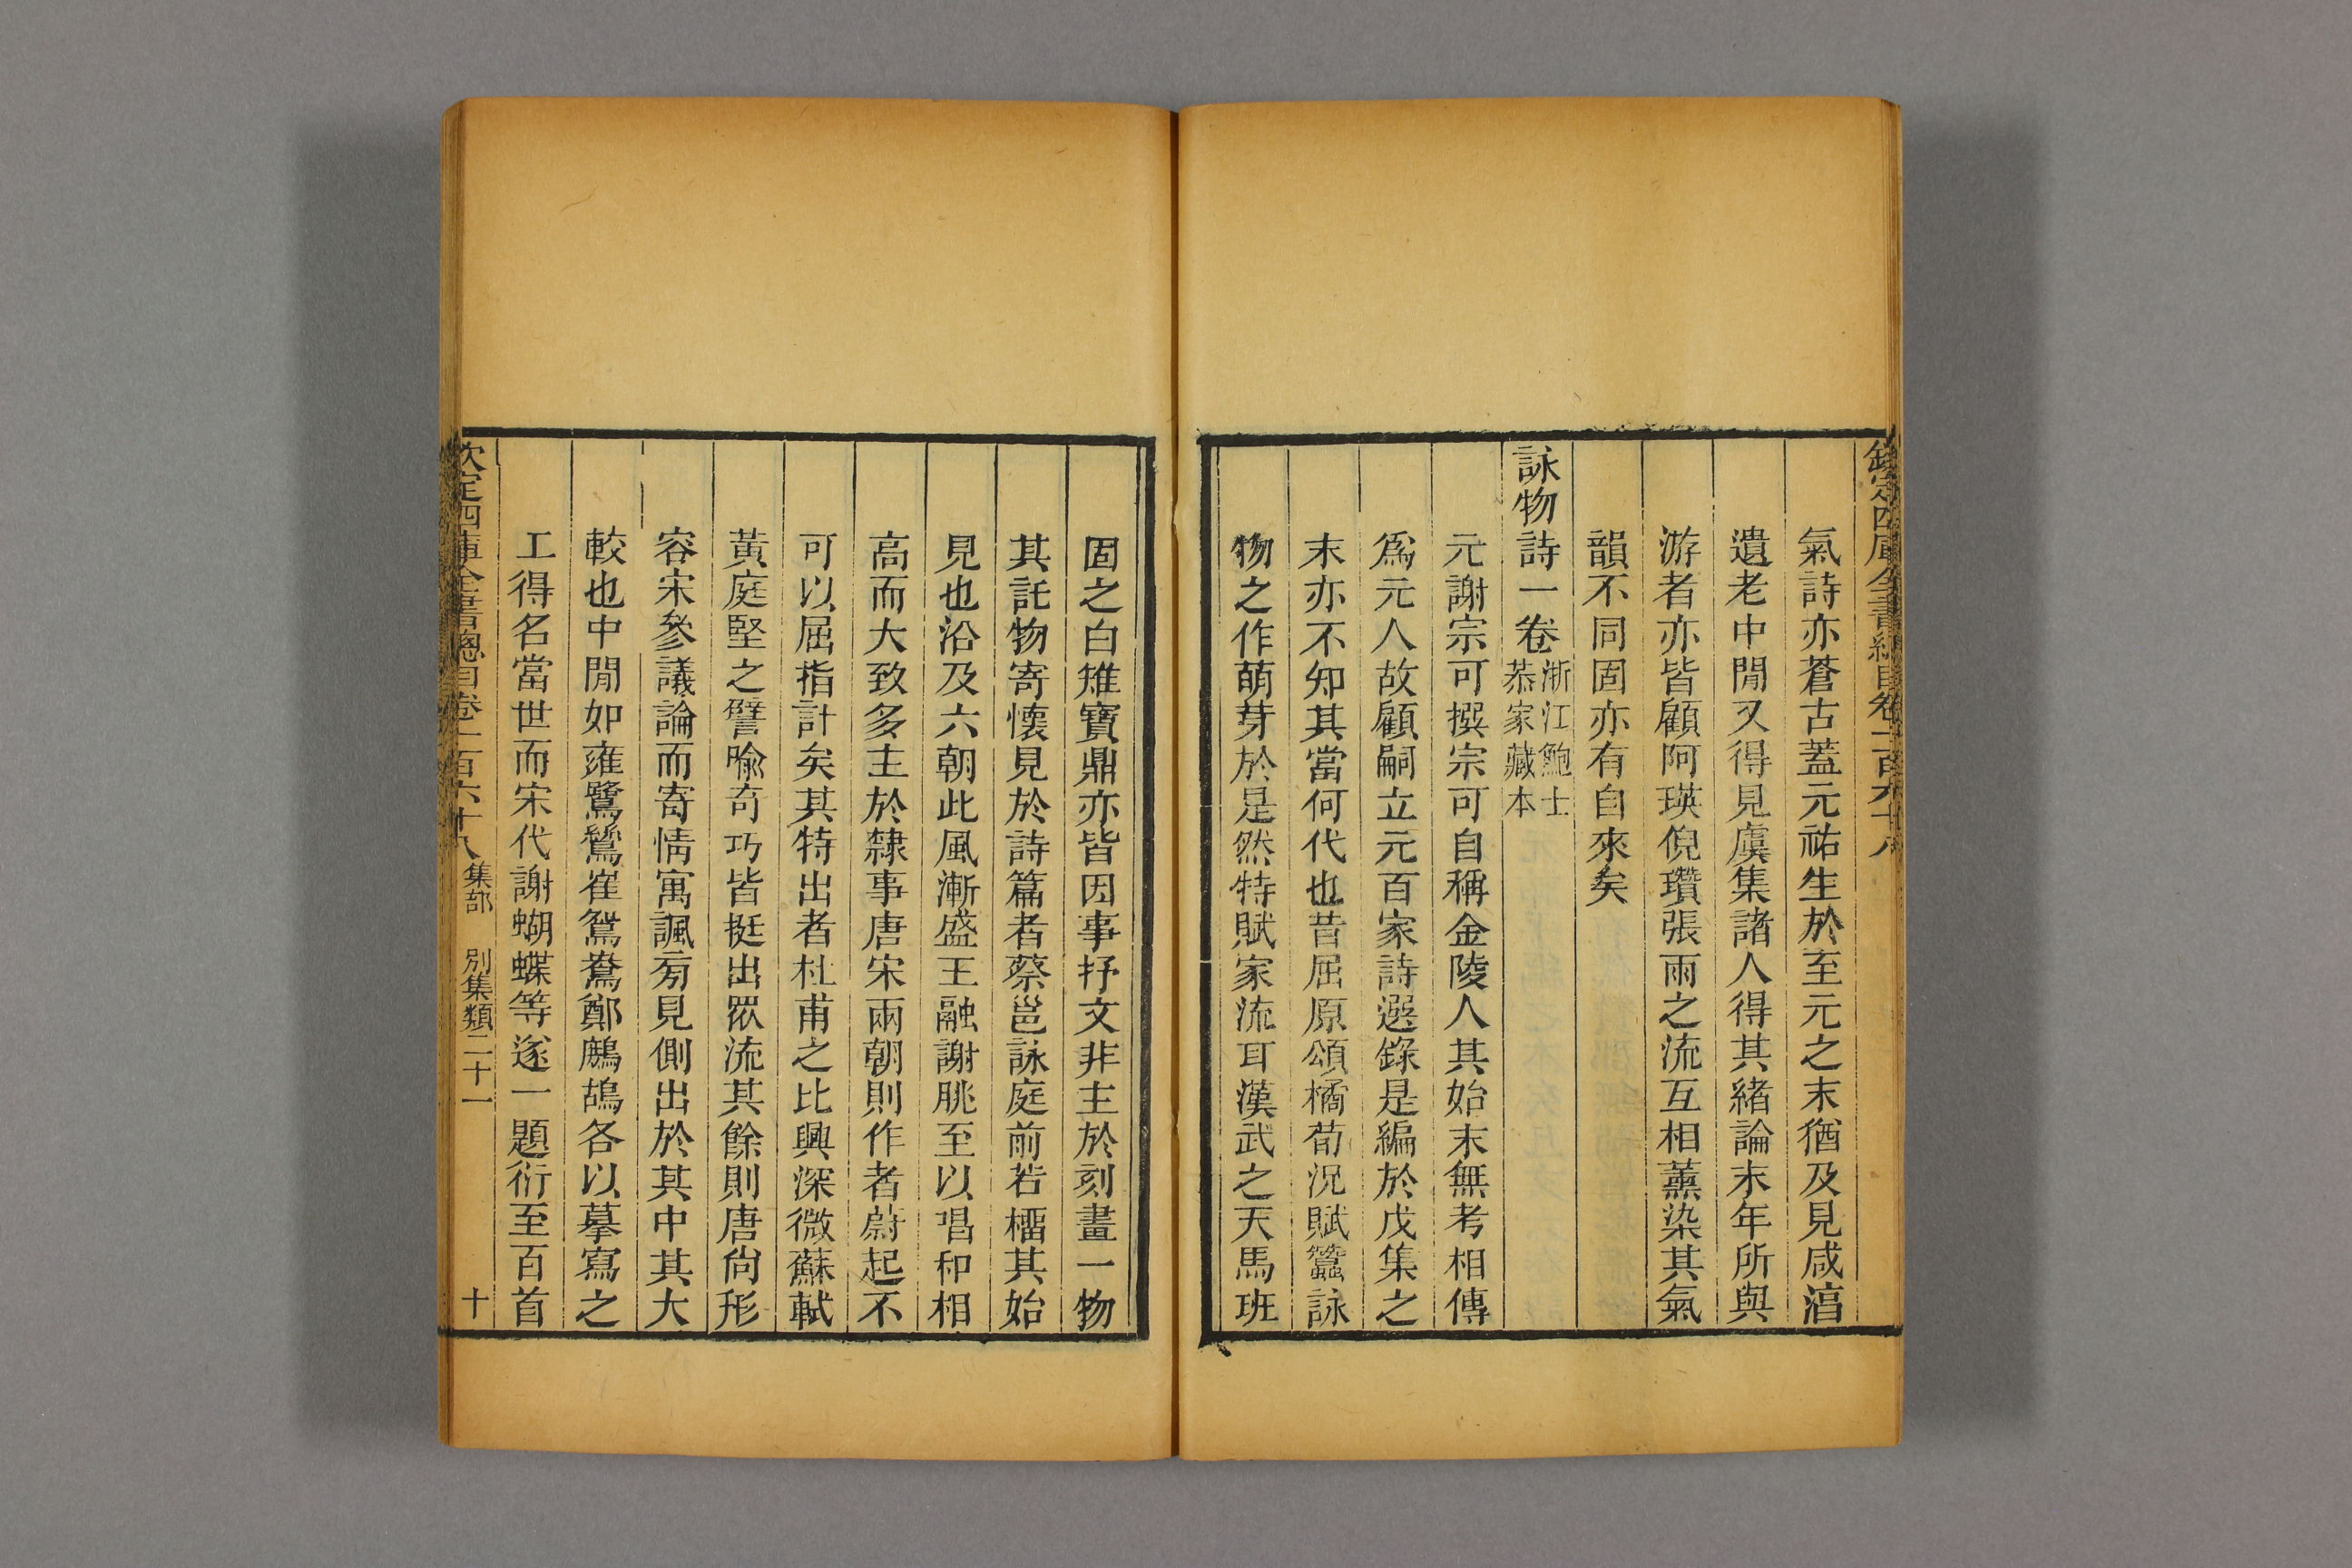 欽定四庫全書總目卷一百六十八
氣詩亦蒼古蓋元祐生於至元之末猶及見咸淳
遺老中閒又得見虞集諸人得其緒論末年所與
游者亦皆顧阿瑛倪瓚張雨之流互相薰染其氣
韻不同固亦有自來矣
詠物詩一卷浙江鮑士恭家藏本
元謝宗可撰宗可自稱金陵人其始末無考相傳
爲元人故顧嗣立元百家詩選錄是編於戊集之
末亦不知其當何代也昔屈原頌橘荀況賦蠶詠
物之作萌芽於是然特賦家流耳漢武之天馬班
固之白雉寶鼎亦皆因事抒文非主於刻畫一物
其託物寄懷見於詩篇者蔡邕詠庭前若榴其始
見也沿及六朝此風漸盛王融謝朓至以唱和相
高而大致多主於隸事唐宋兩朝則作者蔚起不
可以屈指計矣其特出者杜甫之比興深微蘇軾
黃庭堅之譬喩奇巧皆挺出眾流其餘則唐尙形
容宋參議論而寄情寓諷旁見側出於其中其大
較也中閒如雍鷺鷥崔鴛鴦鄭鷓鴣各以摹寫之
工得名當世而宋代謝蝴蝶等遂一題衍至百首
欽定四庫全書總目卷一百六十八 集部 別集類二十一 十